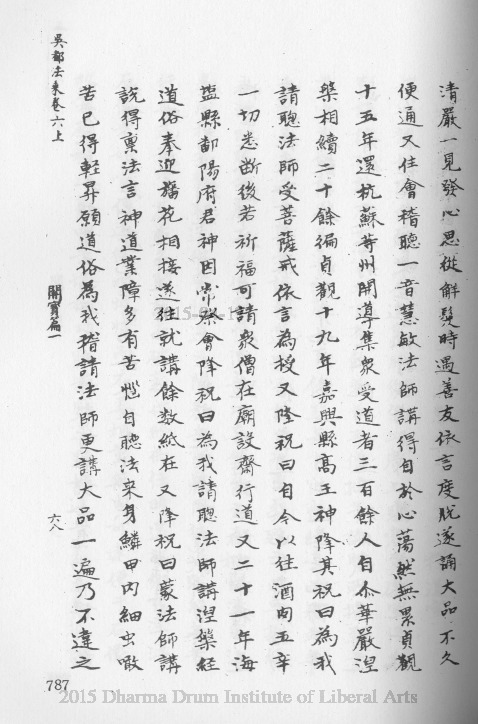 清嚴一見發心思從解髮時遇善友依言度脫遂誦大品不久
便通又往會稽聽一音慧敏法師講得自於心蕩然無累貞觀
十五年還杭蘇等州開導集眾受道者三百餘人自尒華嚴涅
槃相續二十餘徧貞觀十九年嘉興縣高王神降其祝曰為我
請聰法師受菩薩戒依言為授又降祝曰自今以往酒肉五辛
一切悉斷後若祈福可請眾僧在廟設齋行道又二十一年海
鹽縣鄱陽府君神因常祭會降祝曰為我請聰法師講涅槃經
道俗奉迎旛花相接遂往就講餘數紙在又降祝曰蒙法師講
說得稟法言神道業障多有苦惱自聽法來身鱗甲內細虫噉
苦已得輕昇願道俗為我稽請法師更講大品一遍乃不違之
吳都法乘卷六上
開寶篇一
六八
787
2015 Dharma Drum Institute of Liberal Arts